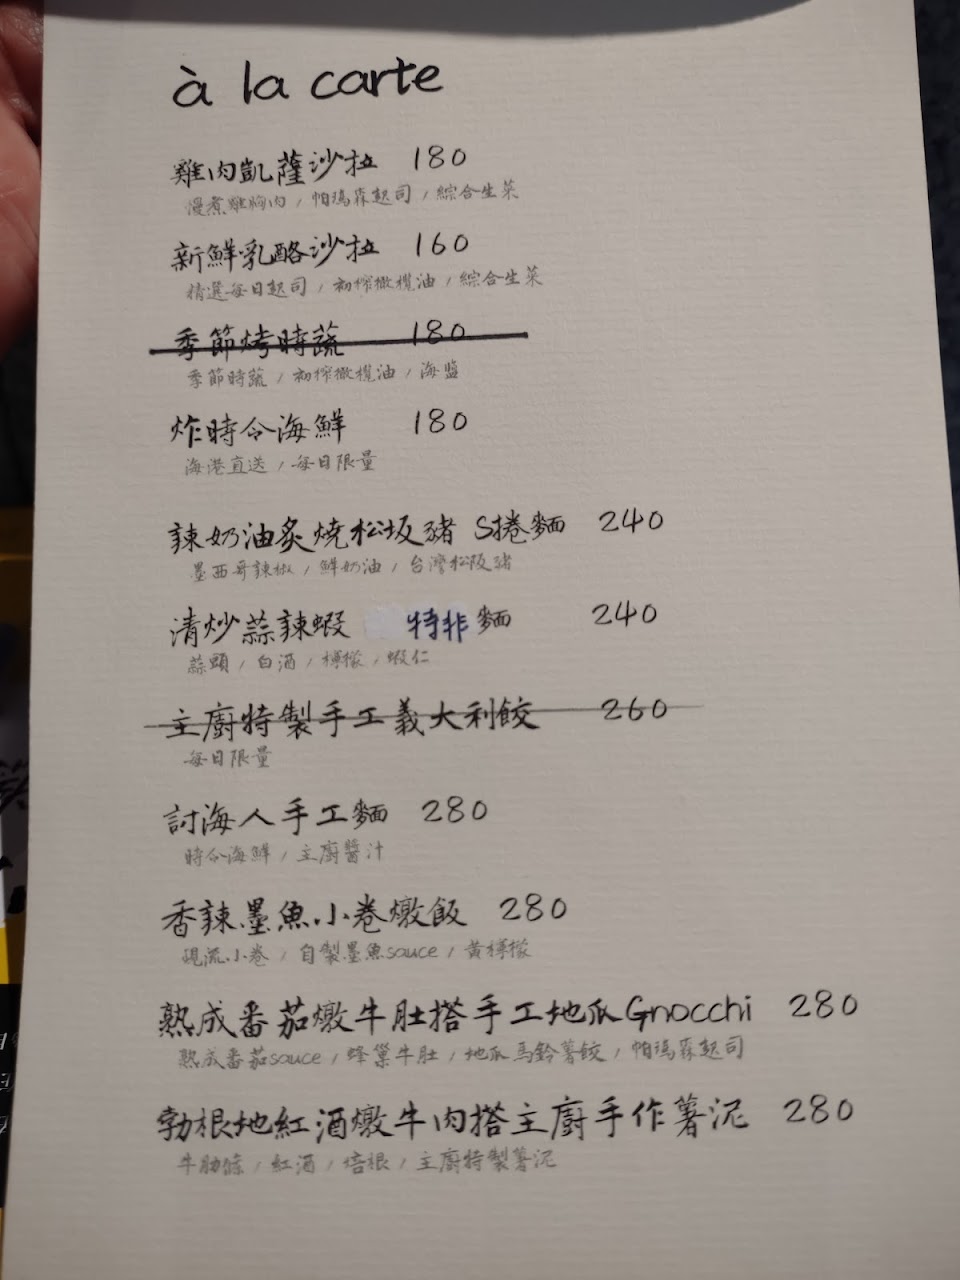 à la carte
雞肉凱薩沙拉 180
慢煮雞胸肉 / 帕瑪森起司 / 綜合生菜
新鮮乳酪沙拉 160
精選每日起司 / 初榨橄欖油 / 綜合生菜
季節烤時蔬 180
季節時蔬 / 初榨橄欖油 / 海鹽
炸時令海鮮 180
海港直送 / 每日限量
辣奶油炙燒松坂豬 S捲麵 240
墨西哥辣椒 / 鮮奶油 / 台灣松阪豬
清炒蒜辣蝦 特非麵 240
蒜頭 / 白酒 / 檸檬 / 蝦仁
主廚特製手工義大利餃 260
每日限量
討海人手工麵 280
時令海鮮 / 主廚醬汁
香辣墨魚小卷燉飯 280
現流小卷 / 自製墨魚sauce / 黃檸檬
熟成番茄燉牛肚搭手工地瓜Gnocchi 280
熟成番茄sauce / 蜂巢牛肚 / 地瓜馬鈴薯餃 / 帕瑪森起司
勃根地紅酒燉牛肉搭主廚手作薯泥 280
牛肋條 / 紅酒 / 培根 / 主廚特製薯泥